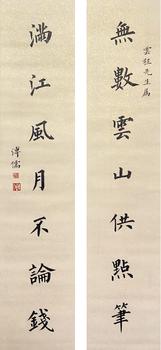 雲程先生屬
無數雲山供點筆
滿江風月不論錢
溥儒